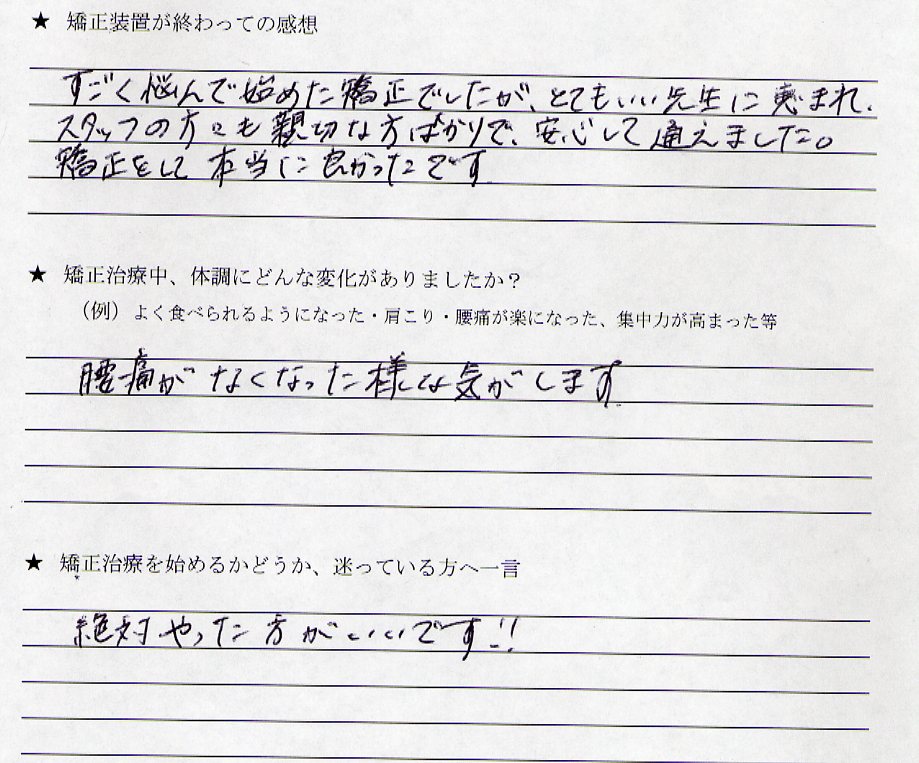 ★ 矯正装置が終わっての感想
すごく悩んで始めた矯正でしたが、とてもいい先生に恵まれ、
スタッフの方々も親切な方ばかりで、安心して通えました。
矯正をして本当に良かったです
★ 矯正治療中、体調にどんな変化がありましたか？
（例）よく食べられるようになった・肩こり・腰痛が楽になった、集中力が高まった等
腰痛がなくなった様な気がします
★ 矯正治療を始めるかどうか、迷っている方へ一言
絶対やった方がいいです!!